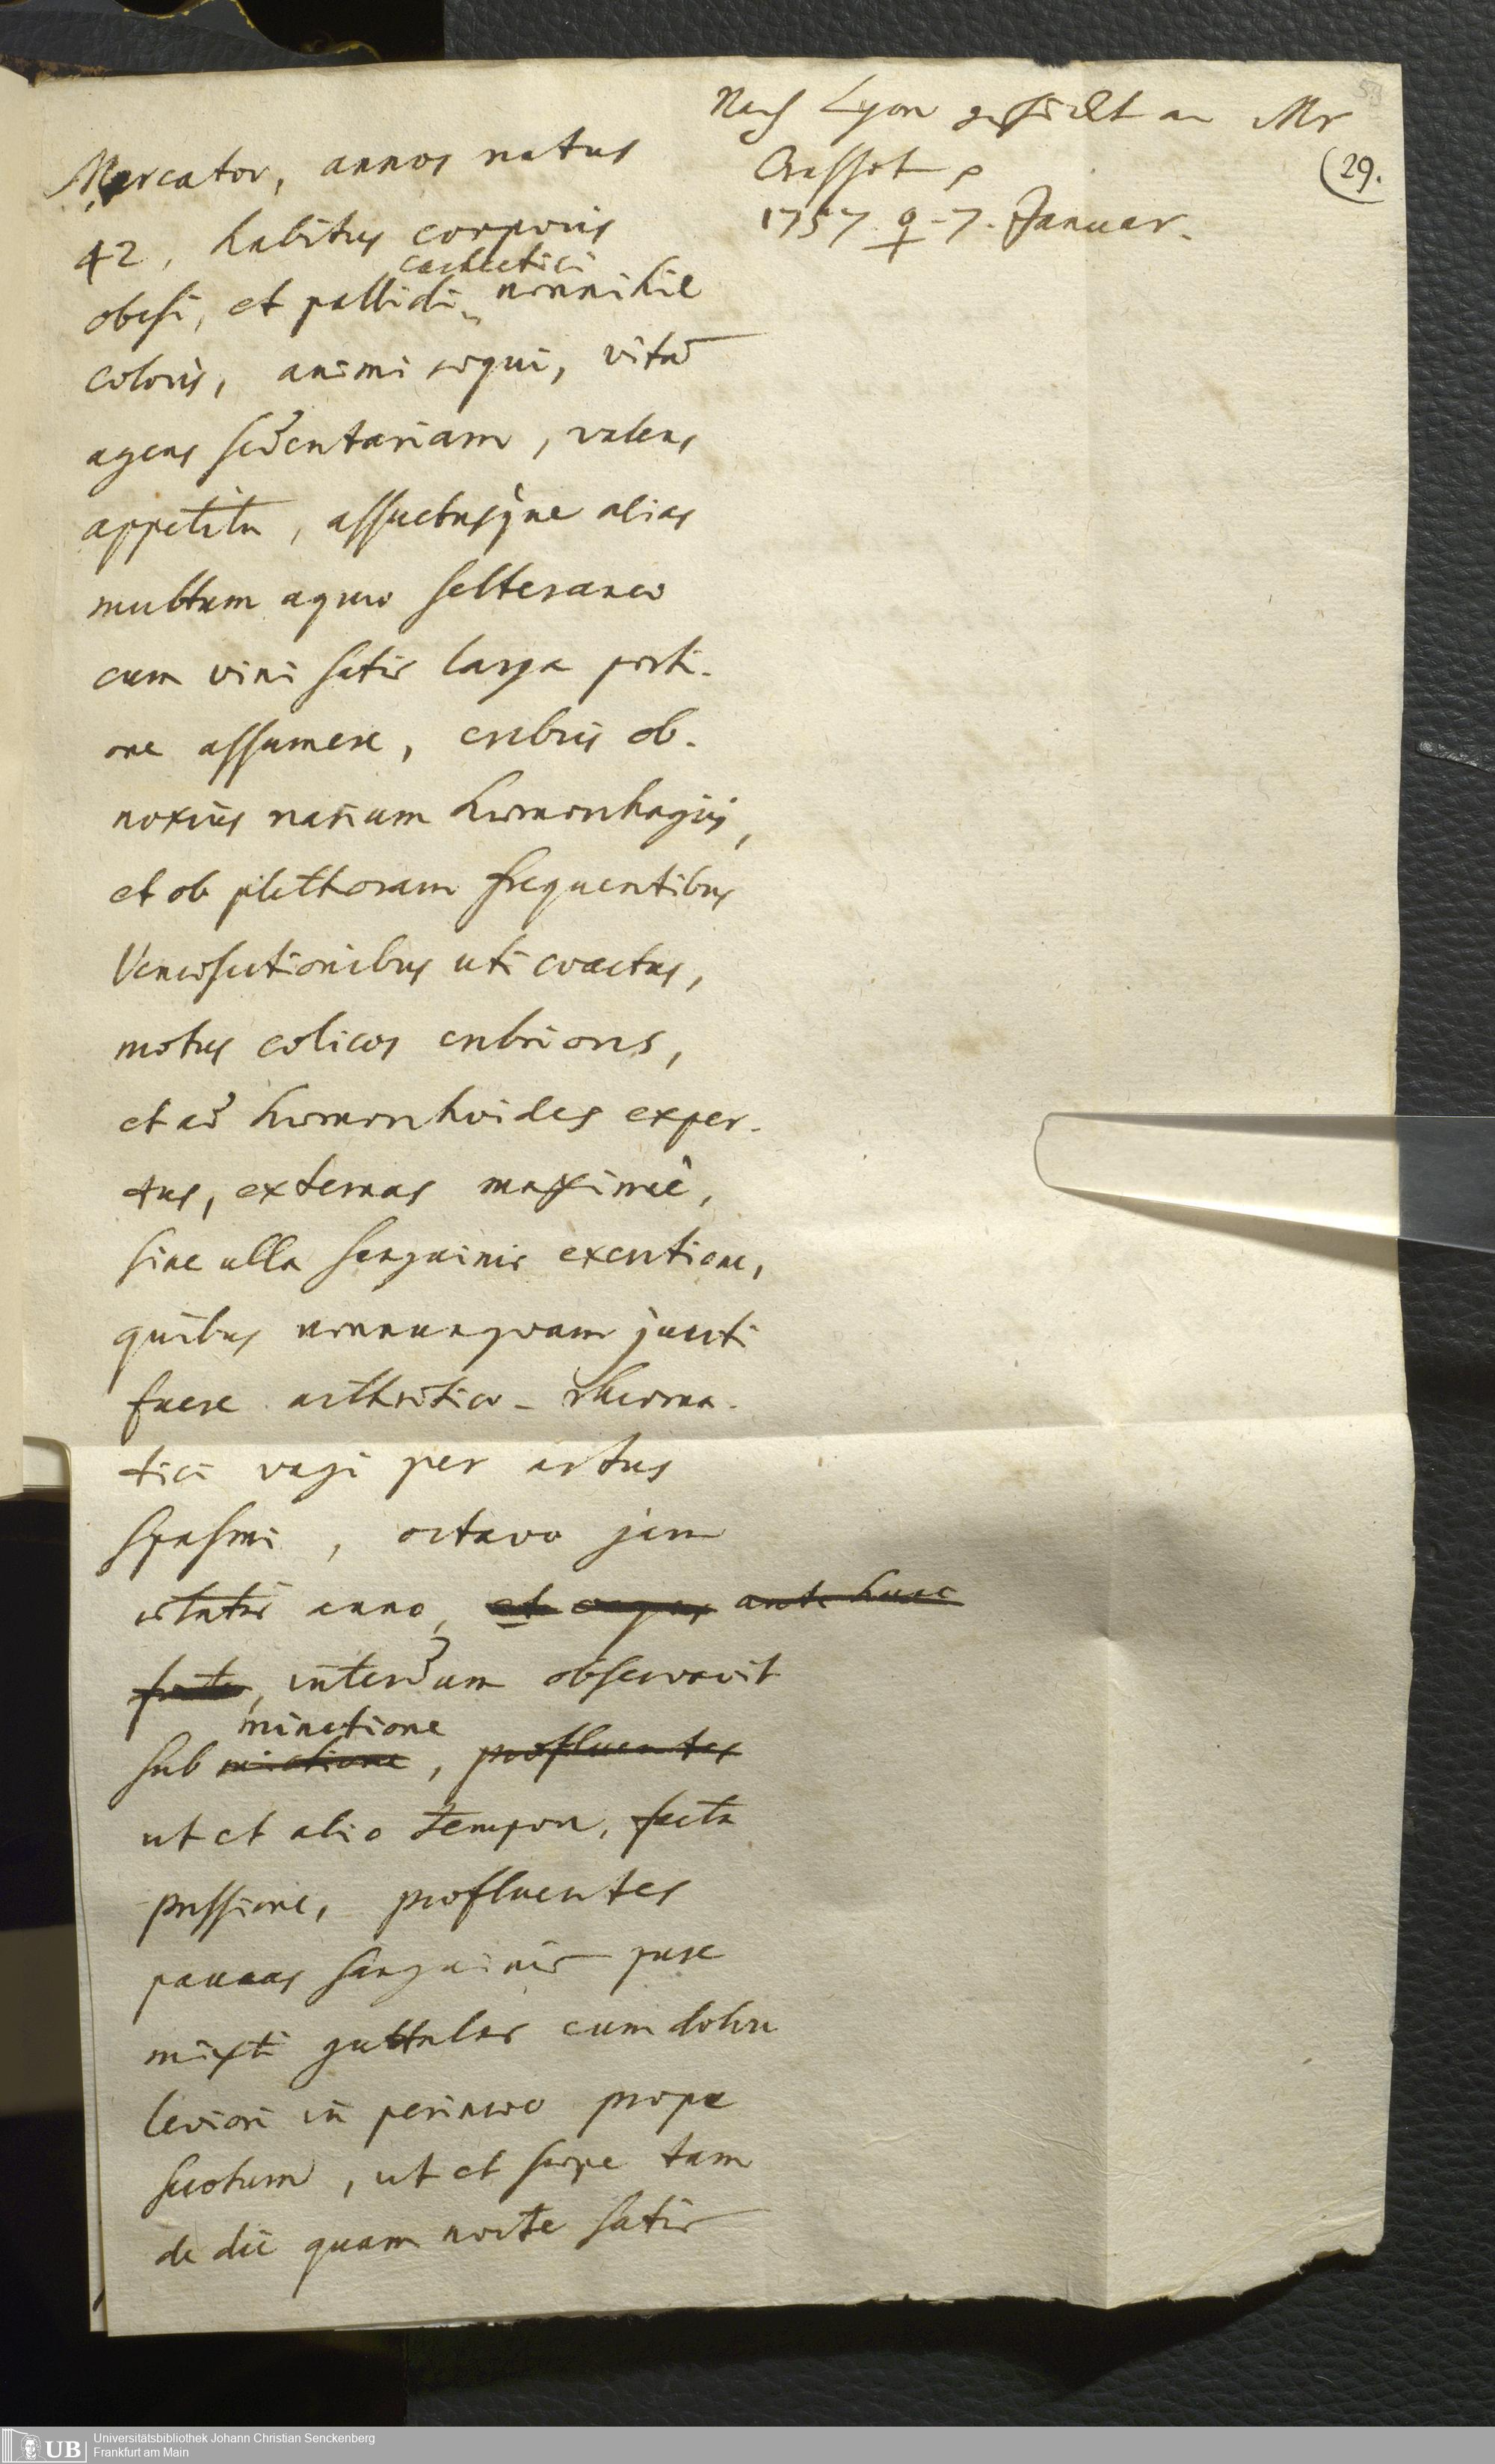 Nach Lyon geschickt an Mr
1757. ♀ 7. Januar.
59
(29.
Mercator, annos natus
42, habitus corporis
cachectici
obesi, et pallidi nonnihil
coloris, animi æqui, vitã
agens sedentariam, valens
appetitu, assuetusque alias
multum aquæ selteranæ
cum vini satis larga porti-
one assumere, crebris ob-
noxius narium hæmorrhagiis,
et ob plethoram frequentibus
Venæsectionibus uti coactus,
motus colicos crebriores,
et ad hæmorrhoides exper-
tus, externas maxime,
sine ulla sanguinis excretione,
quibus nonnunquam juncti
fuere arthritico-rheuma-
tici vagi per artus
spasmi, octavo jam
ætatis anno, et ante hunc
interdum observavit
minctione
sub mictione, profluentes
ut et alio tempore, facta
pressione, profluentes
paucas sanguinis pure
mixti guttulas cum dolore
leviori in perinæo prope
scrotum, ut et sæpe tam
de die quam nocte satis
UB Universitätsbibliothek Johann Christian Senckenberg
Frankfurt am Main